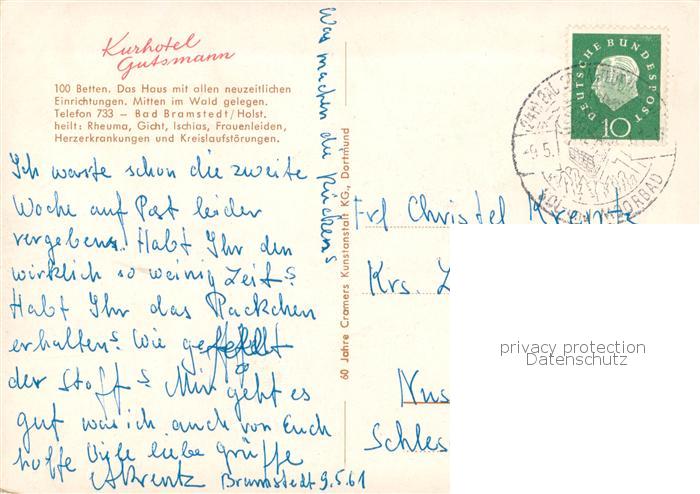 Kurhotel
Gutsmann
100 Betten. Das Haus mit allen neuzeitlichen
Einrichtungen. Mitten im Wald gelegen.
Telefon 733 – Bad Bramstedt/Holst.
heilt: Rheuma, Gicht, Ischias, Frauenleiden,
Herzerkrankungen und Kreislaufstörungen.
Ich warte schon die zweite
Woche auf Post leider
vergebens. Habt Ihr den
wirklich so weinig Zeit?
Habt Ihr das Päckchen
erhalten? Wie gefällt
der Stoff? Mir geht es
gut was ich auch von Euch
hoffe Viele liebe Grüße
Bramstedt 9.5.61
Was machen die Kücken?
60 Jahre Cramers Kunstanstalt KG., Dortmund
DEUTSCHE BUNDESPOST
10
-9.5.
Frl Christel
Krs.
Nus
Schles
privacy protection
Datenschutz